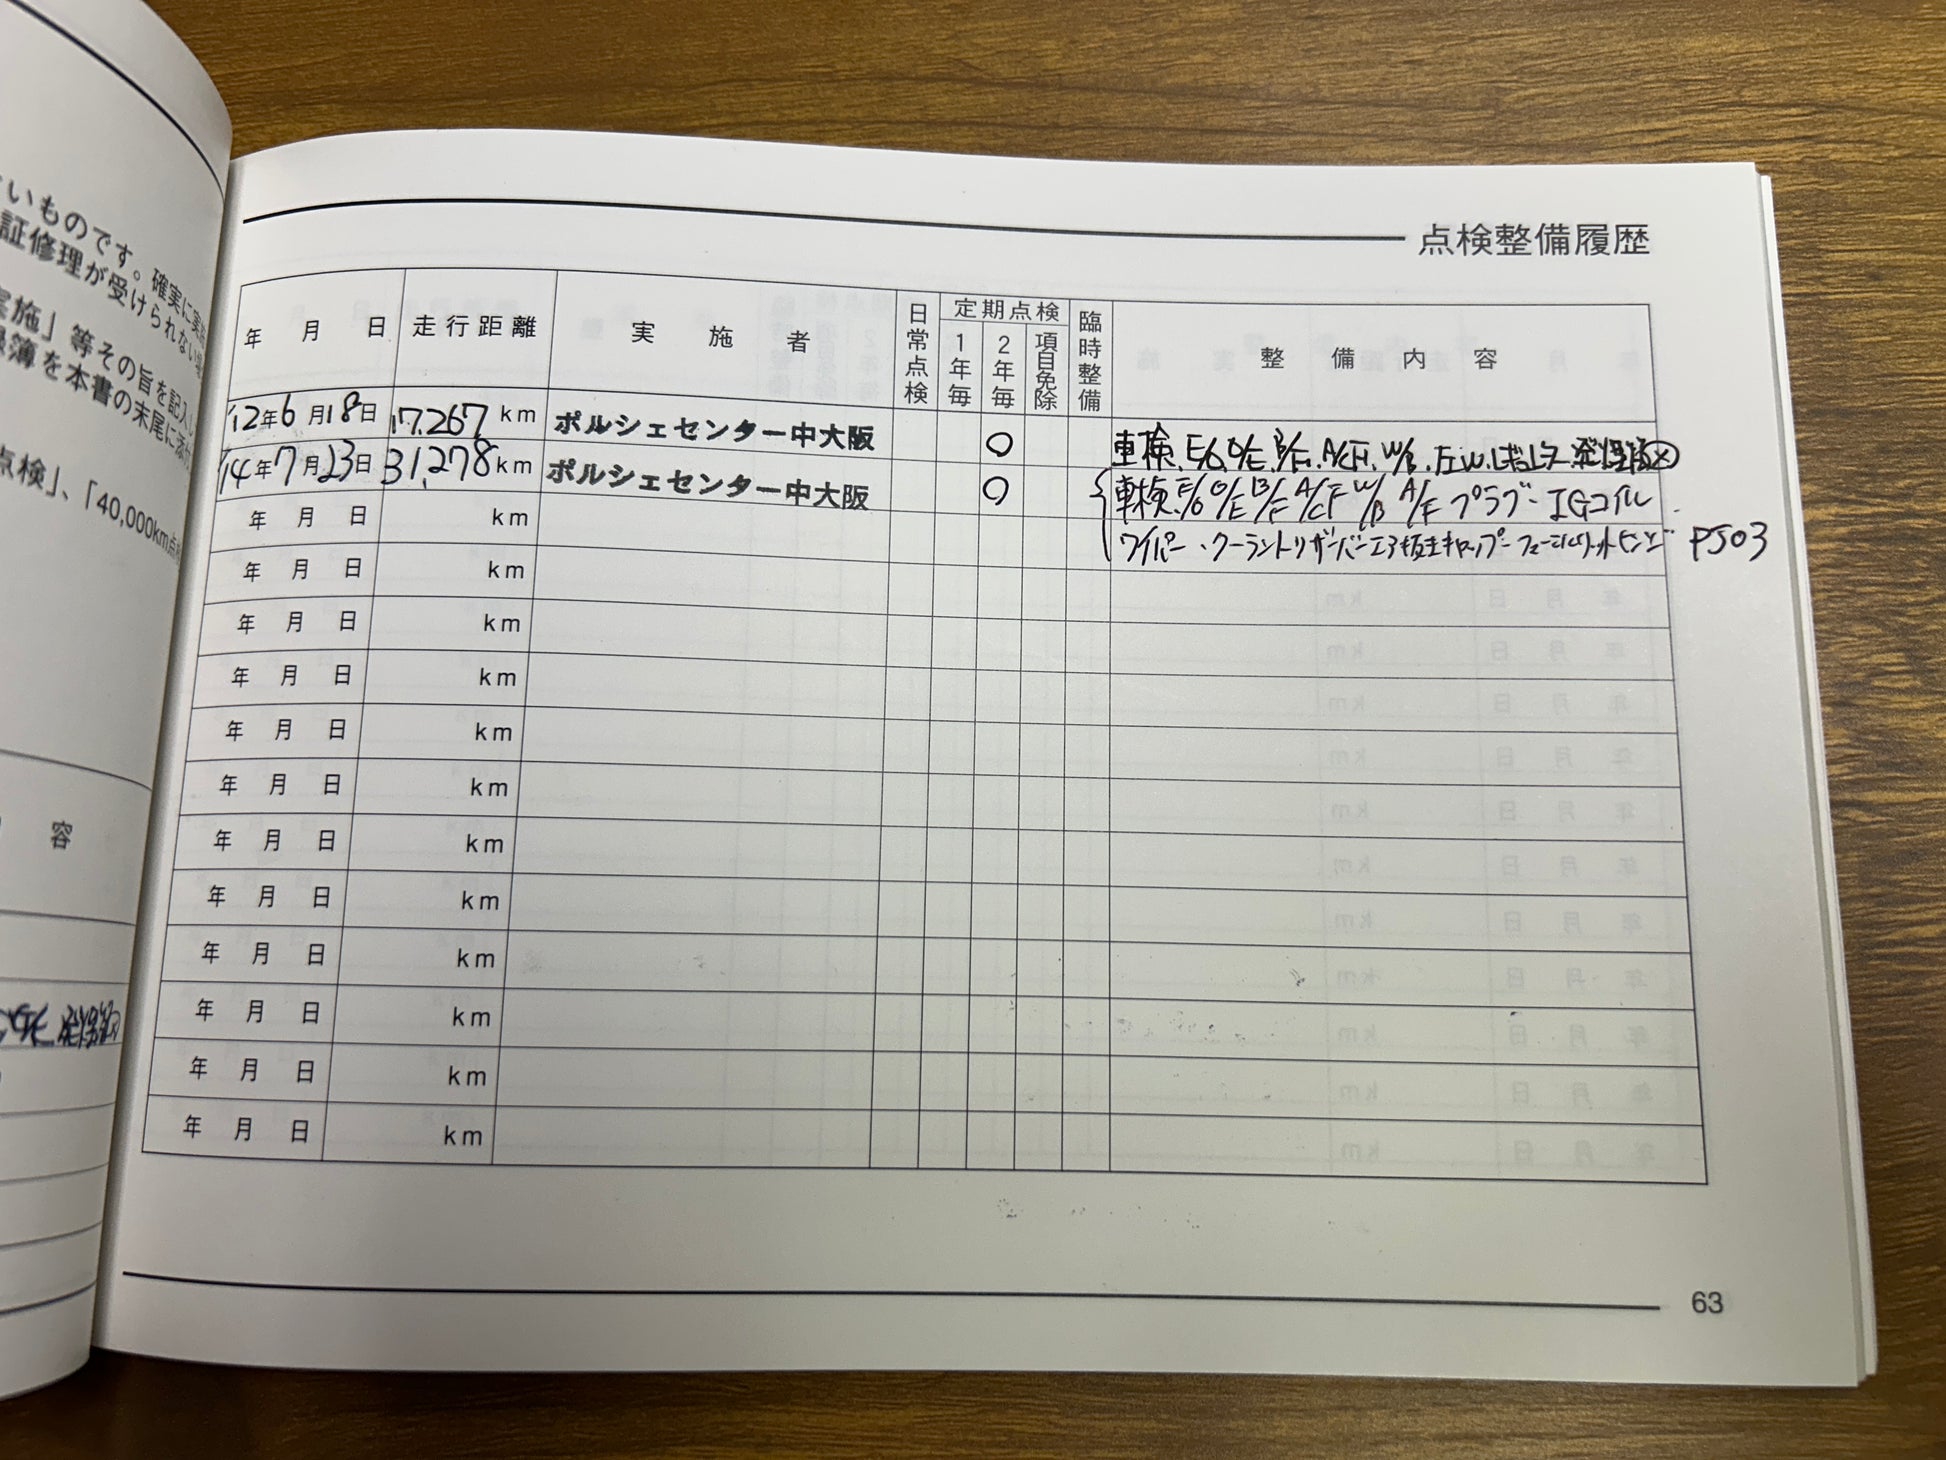 いものです。確実に実施
証修理が受けられない場
実施」等その旨を記入し
録簿を本書の末尾に添付
点検」、「40,000km点検
容
点検整備履歴
年 月 日 走行距離 実施者 日常点検 定期点検 1年毎 2年毎 項目免除 臨時整備 整備内容
'12年6月18日 17,267km ポルシェセンター中大阪 ○ 車検、E/O、O/E、B/F、A/CF、W/B、F.W.
'14年7月23日 31,278km ポルシェセンター中大阪 ○ 車検、E/O O/E B/F A/CF W/B A/F プラグ・IGコイル
年 月 日 km ワイパー・クーラントリザーバーエア抜きキャップ PJ03
年 月 日 km
年 月 日 km
年 月 日 km
年 月 日 km
年 月 日 km
年 月 日 km
年 月 日 km
年 月 日 km
年 月 日 km
年 月 日 km
年 月 日 km
63